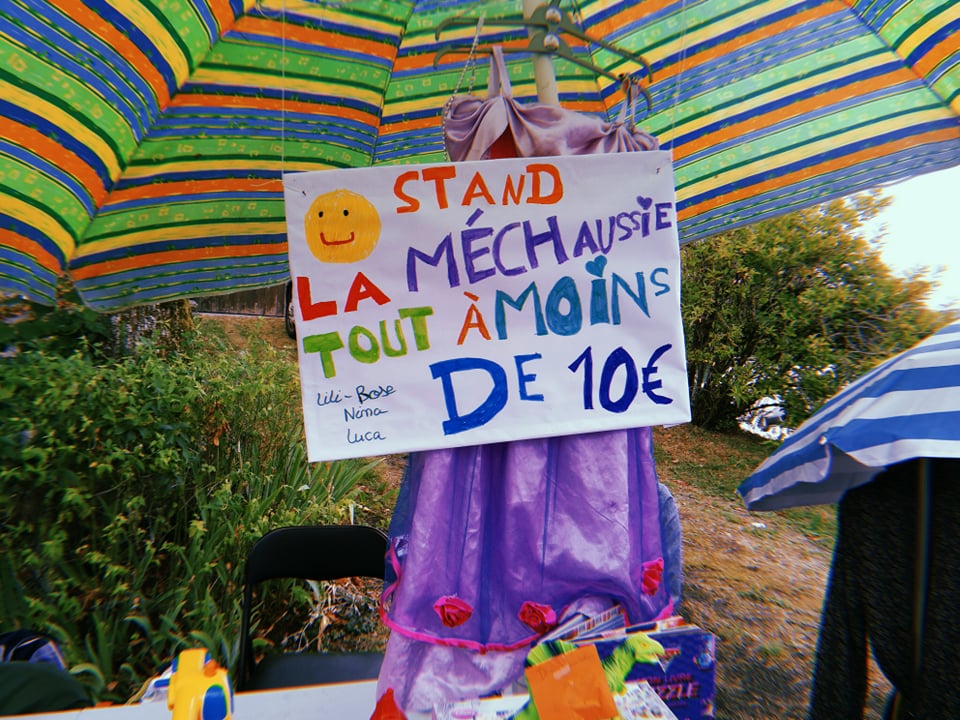 STAND
LA MÉCHAUSSIE
TOUT À MOINS
DE 10€
Lili-Rose
Nina
Luca
MON LIVRE
PUZZLE